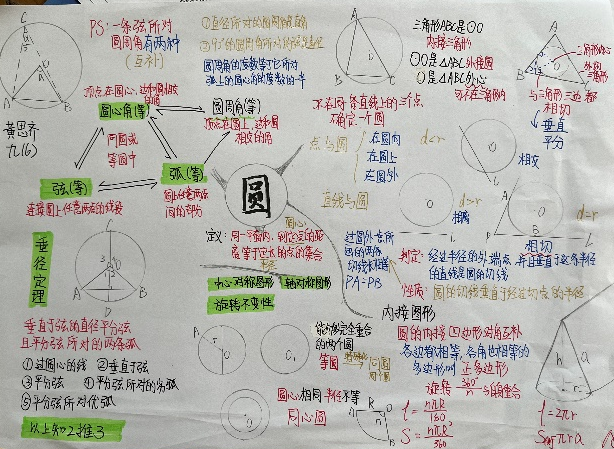 PS:一条弦所对
圆周角有两种
(互补)
①直径所对的圆周角是直角
②90°的圆周角所对的弦是直径
圆周角的度数等于它所对
弧上的圆心角的度数的一半
三角形ABC是⊙O
内接三角形
⊙O是△ABC外接圆
O是△ABC外心
不在同一条直线上的三个点
确定一个圆
与三角形三边都
相切
垂直
平分
黄思齐
九(6)
圆心角(等)
圆周角(等)
顶点在圆上,边和圆
相交的角
同圆或
等圆中
弦(等)
弧(等)
连接圆上任意两点的线段
圆上任意两点
间的部分
圆
点与圆
在圆内
在圆上
在圆外
d<r
相交
直线与圆
d>r
相离
d=r
相切
定义:
中心对称图形
轴对称图形
旋转不变性
过圆外一点
PA=PB
判定:经过半径的外端点并且垂直于这条半径
的直线是圆的切线
性质:圆的切线垂直于经过切点的半径
垂径定理
垂直于弦的直径平分弦
且平分弦所对的两条弧
①过圆心的线 ②垂直于弦
③平分弦 ④平分弦所对的劣弧
⑤平分弦所对优弧
以上知2推3
能够完全重合
的两个圆
等圆
圆心相同半径不等
同心圆
内接图形
圆的内接四边形对角互补
各边都相等,各角也相等的
多边形叫正多边形
旋转360°/n与自身重合
l=nπR/180
S=nπR²/360
l=2πr